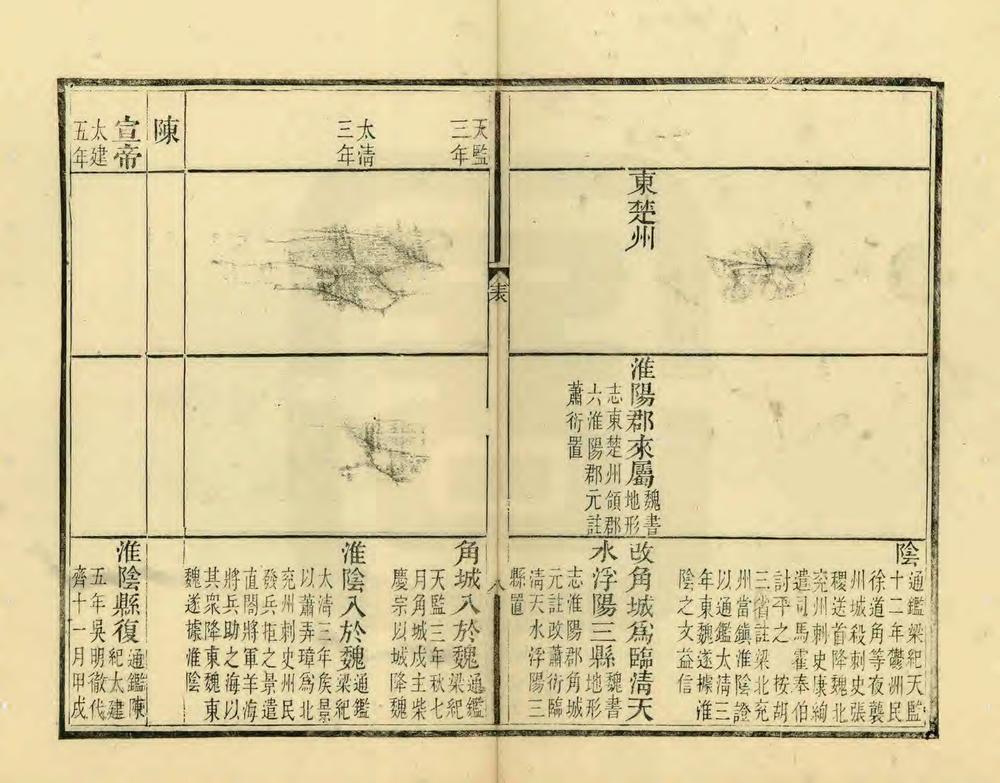 東楚州
淮陽郡來屬
魏書
地形
志東楚州領郡
六淮陽郡元註
蕭衍置
陰
通鑑梁紀天監
十二年鬱洲民
徐道角等夜襲
州城殺刺史張
稷送首降魏北
兖州刺史康絢
遣司馬霍奉伯
討平之 按胡
三省註梁北兖
州當鎮淮陰證
以通鑑太淸三
年東魏遂據淮
陰之文益信
改角城爲臨淸天
水浮陽三縣
魏書
地形
志淮陽郡角城
元註改蕭衍臨
淸天水浮陽三
縣置
表
八
天監
三年
角城入於魏
通鑑
梁紀
天監三年秋七
月角城戍主柴
慶宗以城降魏
太淸
三年
淮陰入於魏
通鑑
梁紀
太淸三年矦景
以蕭弄璋爲北
兖州刺史州民
發兵拒之景遣
直閤將軍羊海
將兵助之海以
其衆降東魏東
魏遂據淮陰
陳
宣帝
太建
五年
淮陰縣復
通鑑陳
紀太建
五年吳明徹伐
齊十一月甲戌